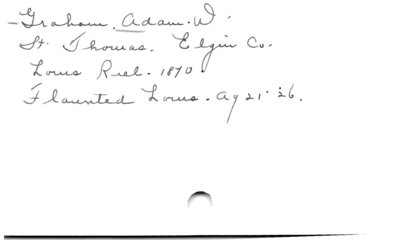 - Graham. Adam. W.
St. Thomas. Elgin Co.
Louis Riel. 1870
Flaunted Louis. Ag 21. 26.